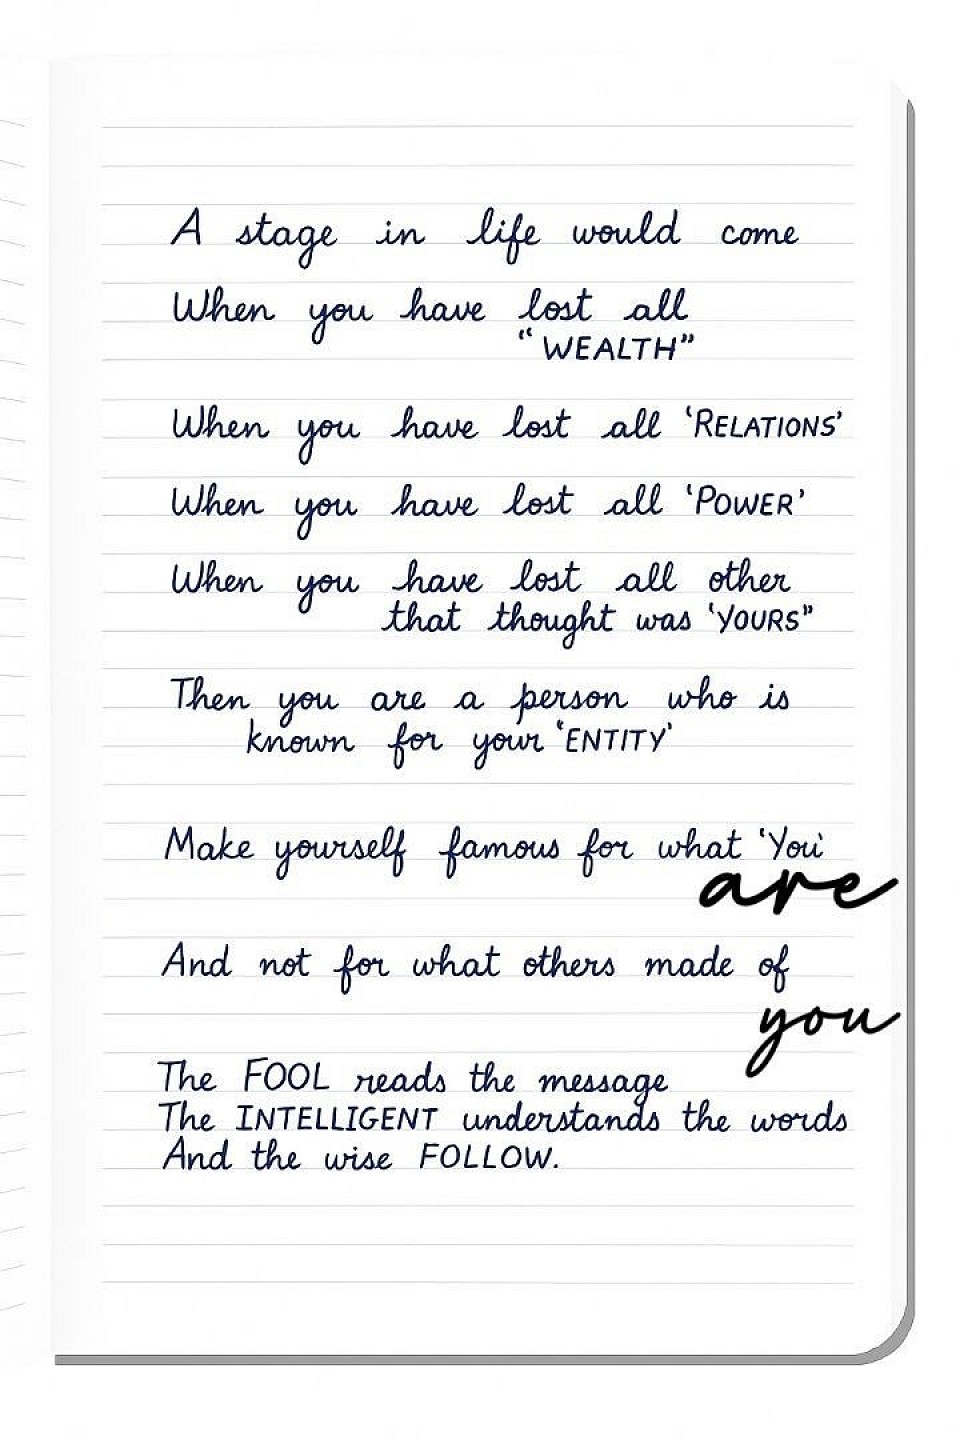 A stage in life would come
When you have lost all
“WEALTH”
When you have lost all ‘RELATIONS’
When you have lost all ‘POWER’
When you have lost all other
that thought was ‘YOURS”
Then you are a person who is
known for your ‘ENTITY’
Make yourself famous for what ‘You’
are
And not for what others made of
you
The FOOL reads the message
The INTELLIGENT understands the words
And the wise FOLLOW.